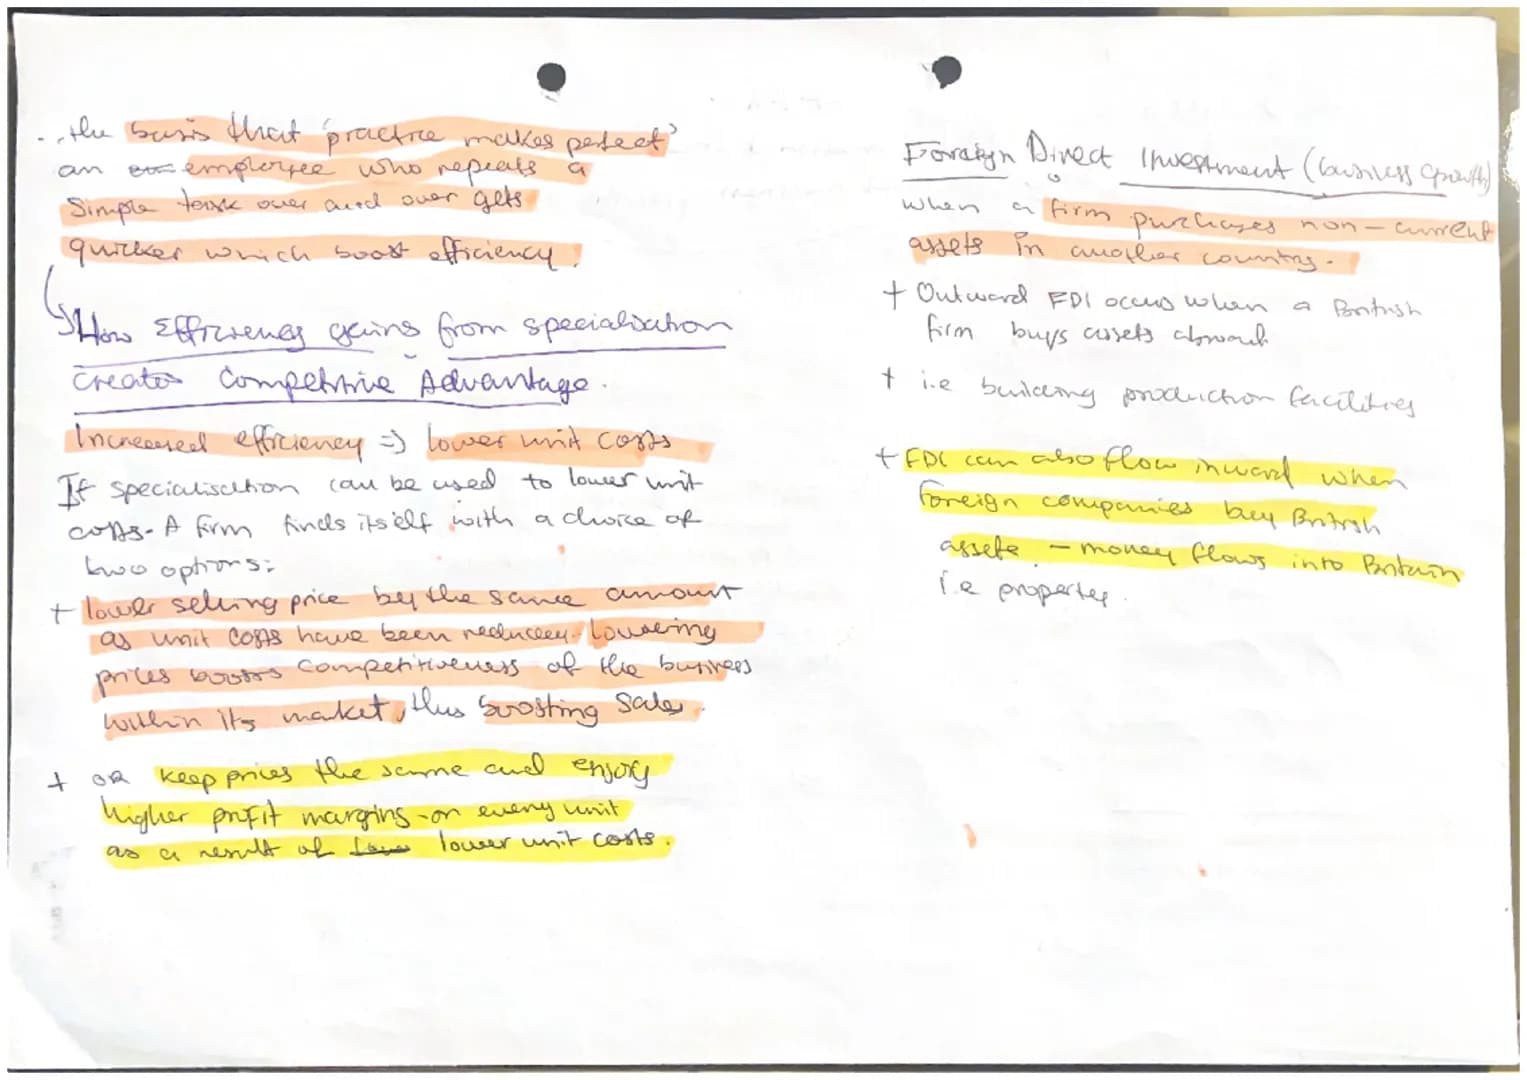 ...the basis that 'practice makes perfect'
an employee who repeats a
Simple task over and over gets
quicker which boost efficiency.
How Efficiency gains from specialisation
creates Competitive Advantage.
Increased efficiency => lower unit costs
If specialisation can be used to lower unit
costs. A firm finds itself with a choice of
two options:
+ lower selling price by the same amount
as unit costs have been reduced. Lowering
prices boosts competitiveness of the business
within its market, thus boosting sales.
+ or keep prices the same and enjoy
higher profit margins on every unit
as a result of lower unit costs.
Foreign Direct Investment (business growth)
when a firm purchases non-current
assets in another country.
+ Outward FDI occurs when a British
firm buys assets abroad
+ i.e building production facilities
+ FDI can also flow inward when
foreign companies buy British
assets - money flows into Britain
i.e property.